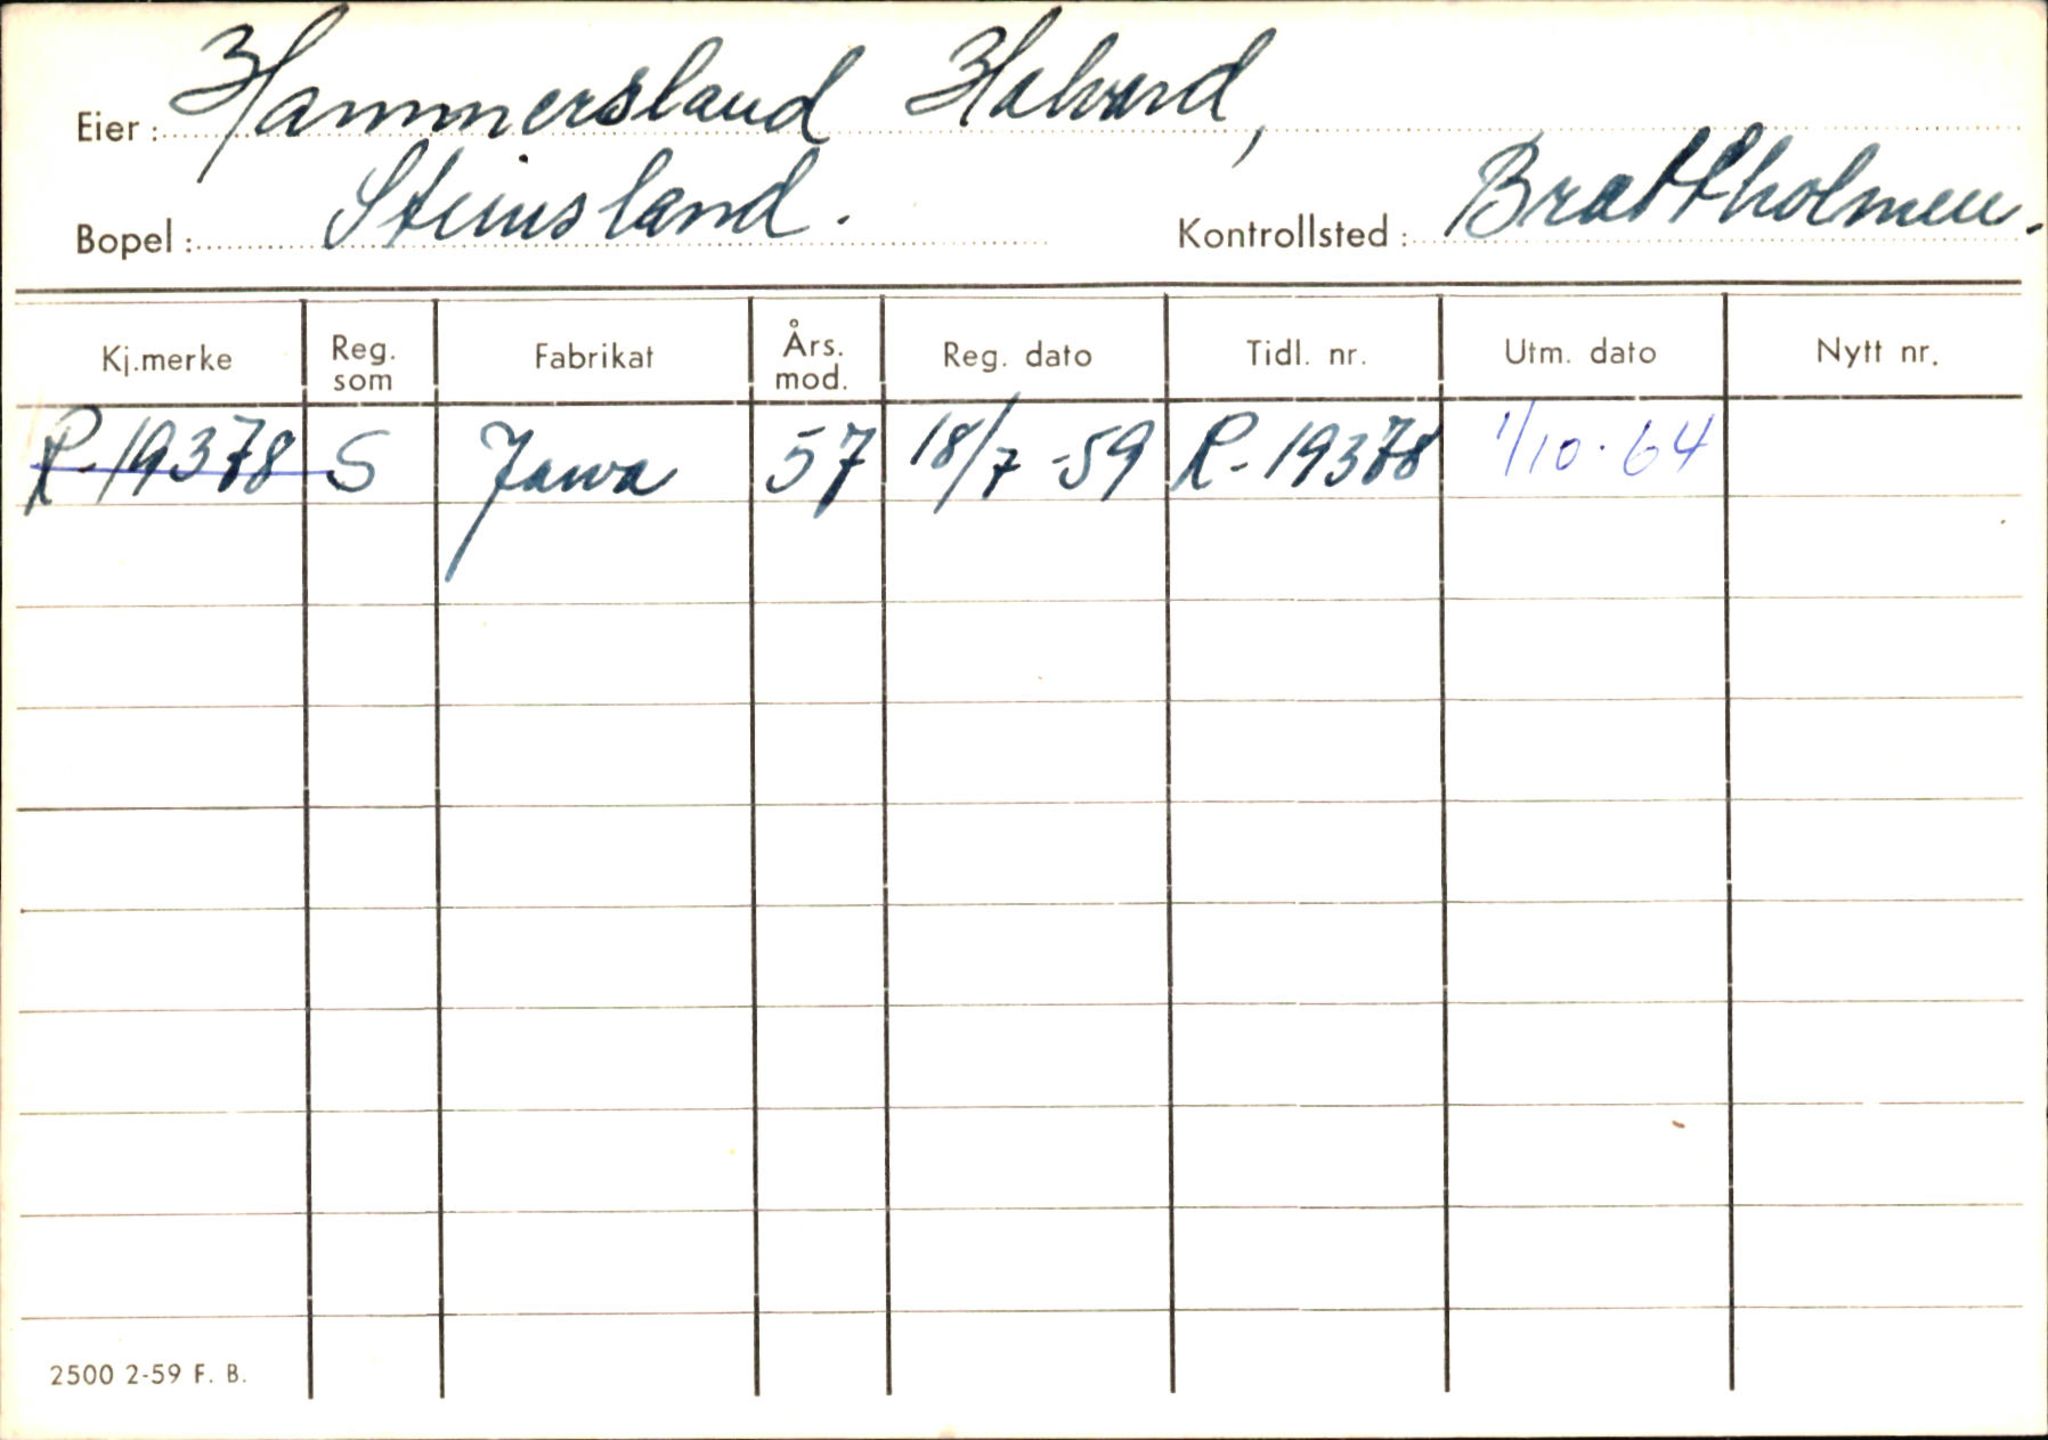 Eier: Hammersland Halvard,
Bopel: Steinsland. Kontrollsted: Brattholmen.
Kj.merke Reg. som Fabrikat Års. mod. Reg. dato Tidl. nr. Utm. dato Nytt nr.
R-19378 S Jawa 57 18/7-59 R-19378 1/10-64
2500 2-59 F. B.